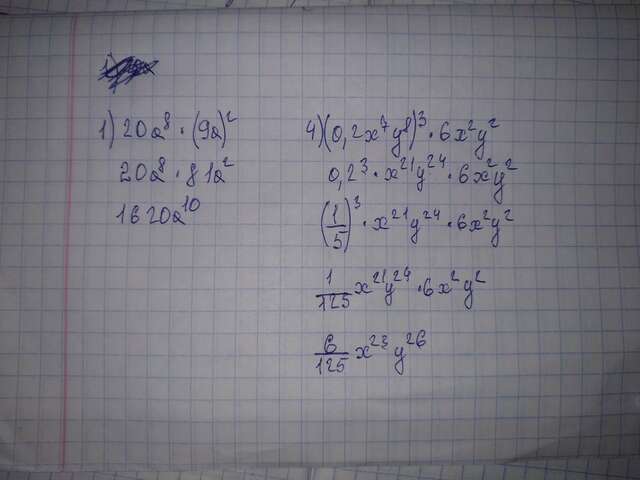 1) 20a⁸ · (9a)²
20a⁸ · 81a²
1620a¹⁰
4) (0,2x⁷y⁸)³ · 6x²y²
0,2³ · x²¹y²⁴ · 6x²y²
(1/5)³ · x²¹y²⁴ · 6x²y²
1/125 x²¹y²⁴ · 6x²y²
6/125 x²³y²⁶